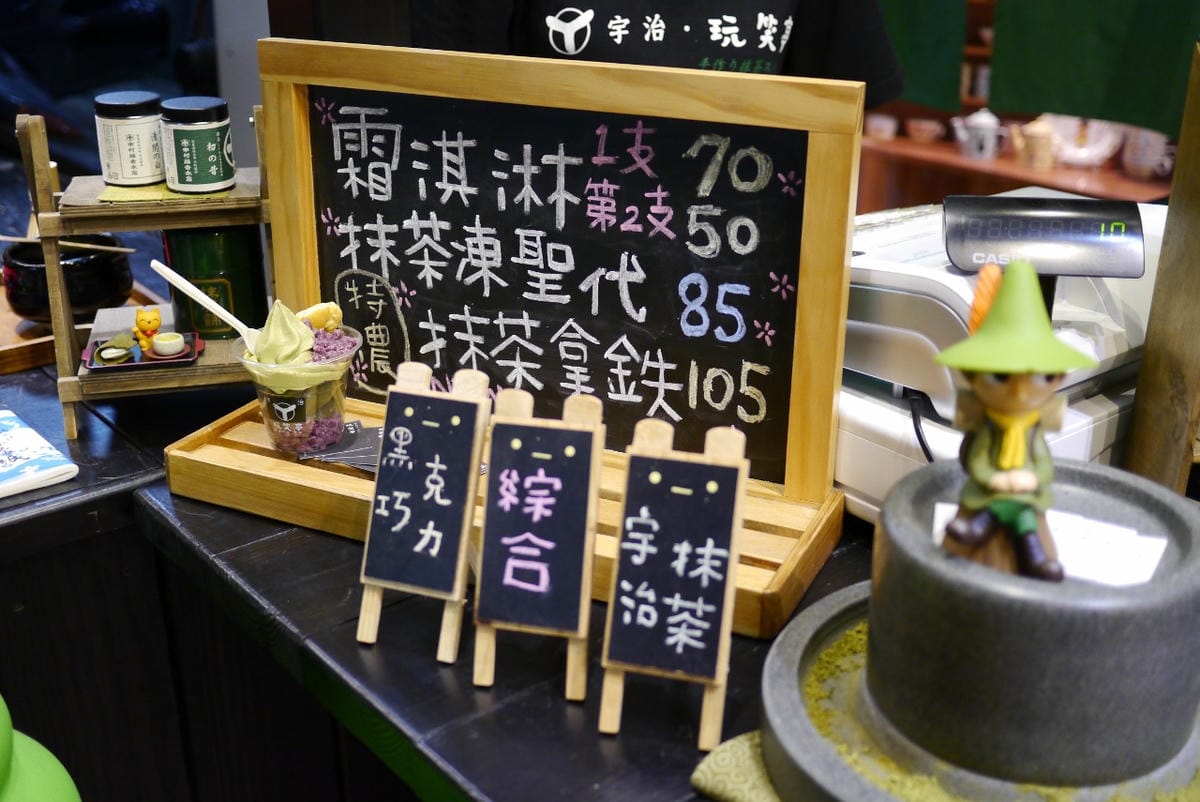 宇治・玩笑
手作り抹茶ス
霜淇淋 1支 70
第2支 50
抹茶凍聖代 85
特濃 抹茶拿鐵 105
黑克
巧力
綜合
宇抹
治茶
初の昔
CASIO
10
宇治